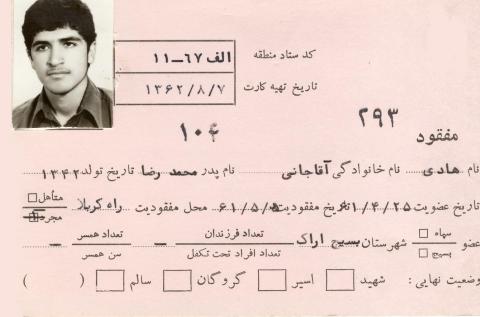 کد ستاد منطقه الف ۶۷-۱۱
تاریخ تهیه کارت ۱۳۶۲/۸/۷
۲۹۳ ۱۰۴
مفقود
نام هادی نام خانوادگی آقاجانی نام پدر محمد رضا تاریخ تولد ۱۳۴۲
تاریخ عضویت ۶۱/۴/۲۵ تاریخ مفقودیت ۶۱/۵/۵ محل مفقودیت راه کربلا متأهل □
مجرد
عضو سپاه □ بسیج □ شهرستان بسیج اراک تعداد فرزندان – تعداد افراد تحت تکفل تعداد همسر – سن همسر
وضعیت نهایی : شهید □ اسیر □ گروگان □ سالم □ ( )